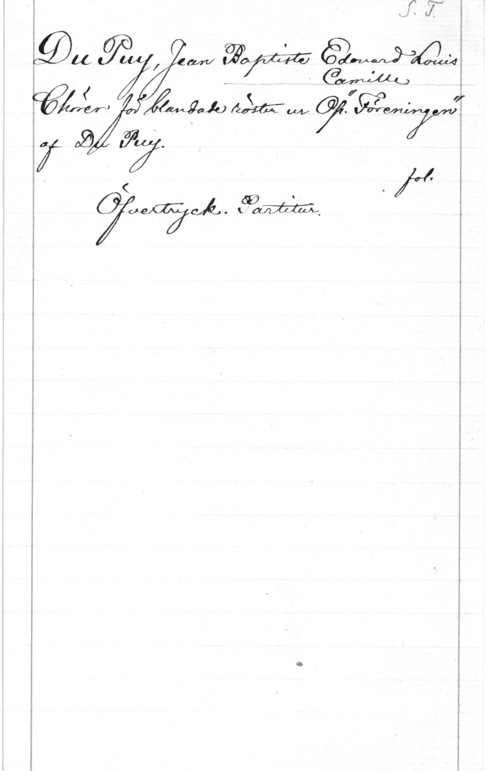 S. T.
Du Puy, Jean Baptiste Edouard Louis
Camille
Chörer för blandade röster ur Op. "Föreningen"
af Du Puy.
fol.
Öfvertryck. Partitur.